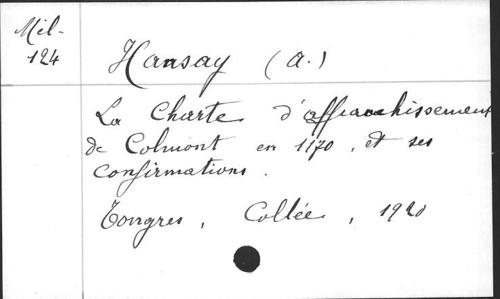 Mél-
124
Hansay (A.)
La Charte d'affranchissement
de Colmont en 1170, et ses
confirmations.
Tongres, Collée, 1920